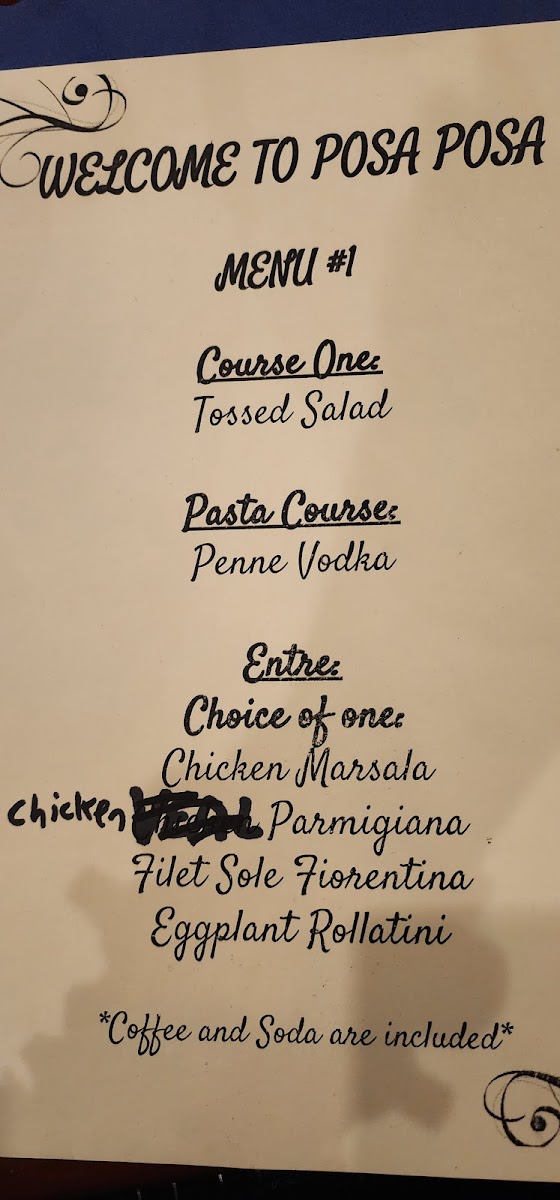 WELCOME TO POSA POSA
MENU #1
Course One:
Tossed Salad
Pasta Course:
Penne Vodka
Entre:
Choice of one:
Chicken Marsala
chicken Parmigiana
Filet Sole Fiorentina
Eggplant Rollatini
*Coffee and Soda are included*